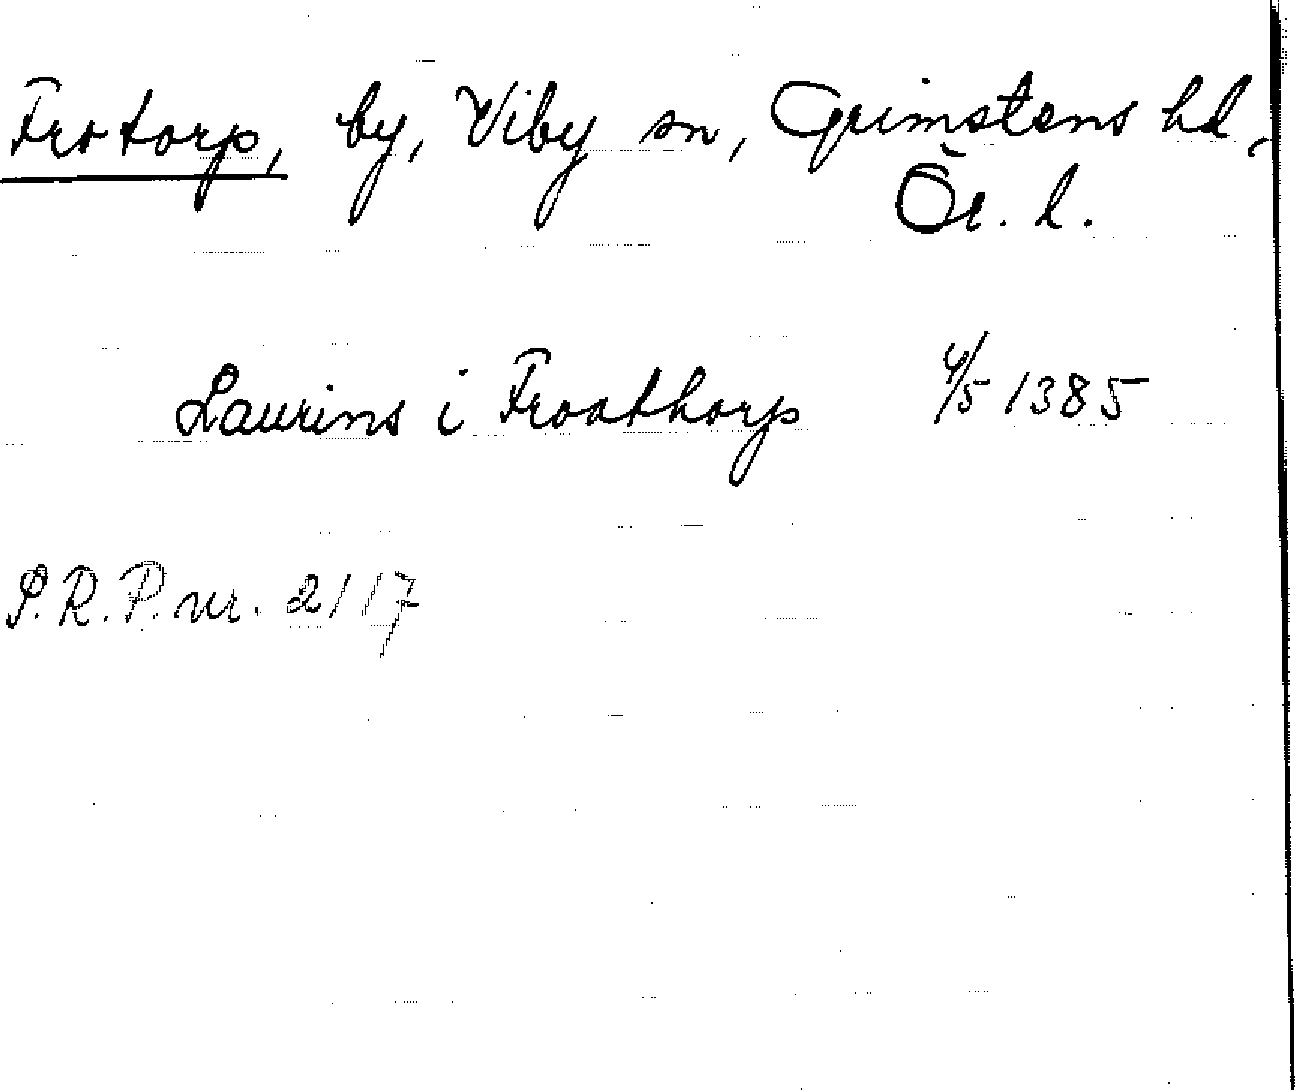 Frotorp, by, Viby sn, Grimstens hd,
Ör. l.
Laurins i Froathorp 4/5 1385
S.R.P. nr. 2117